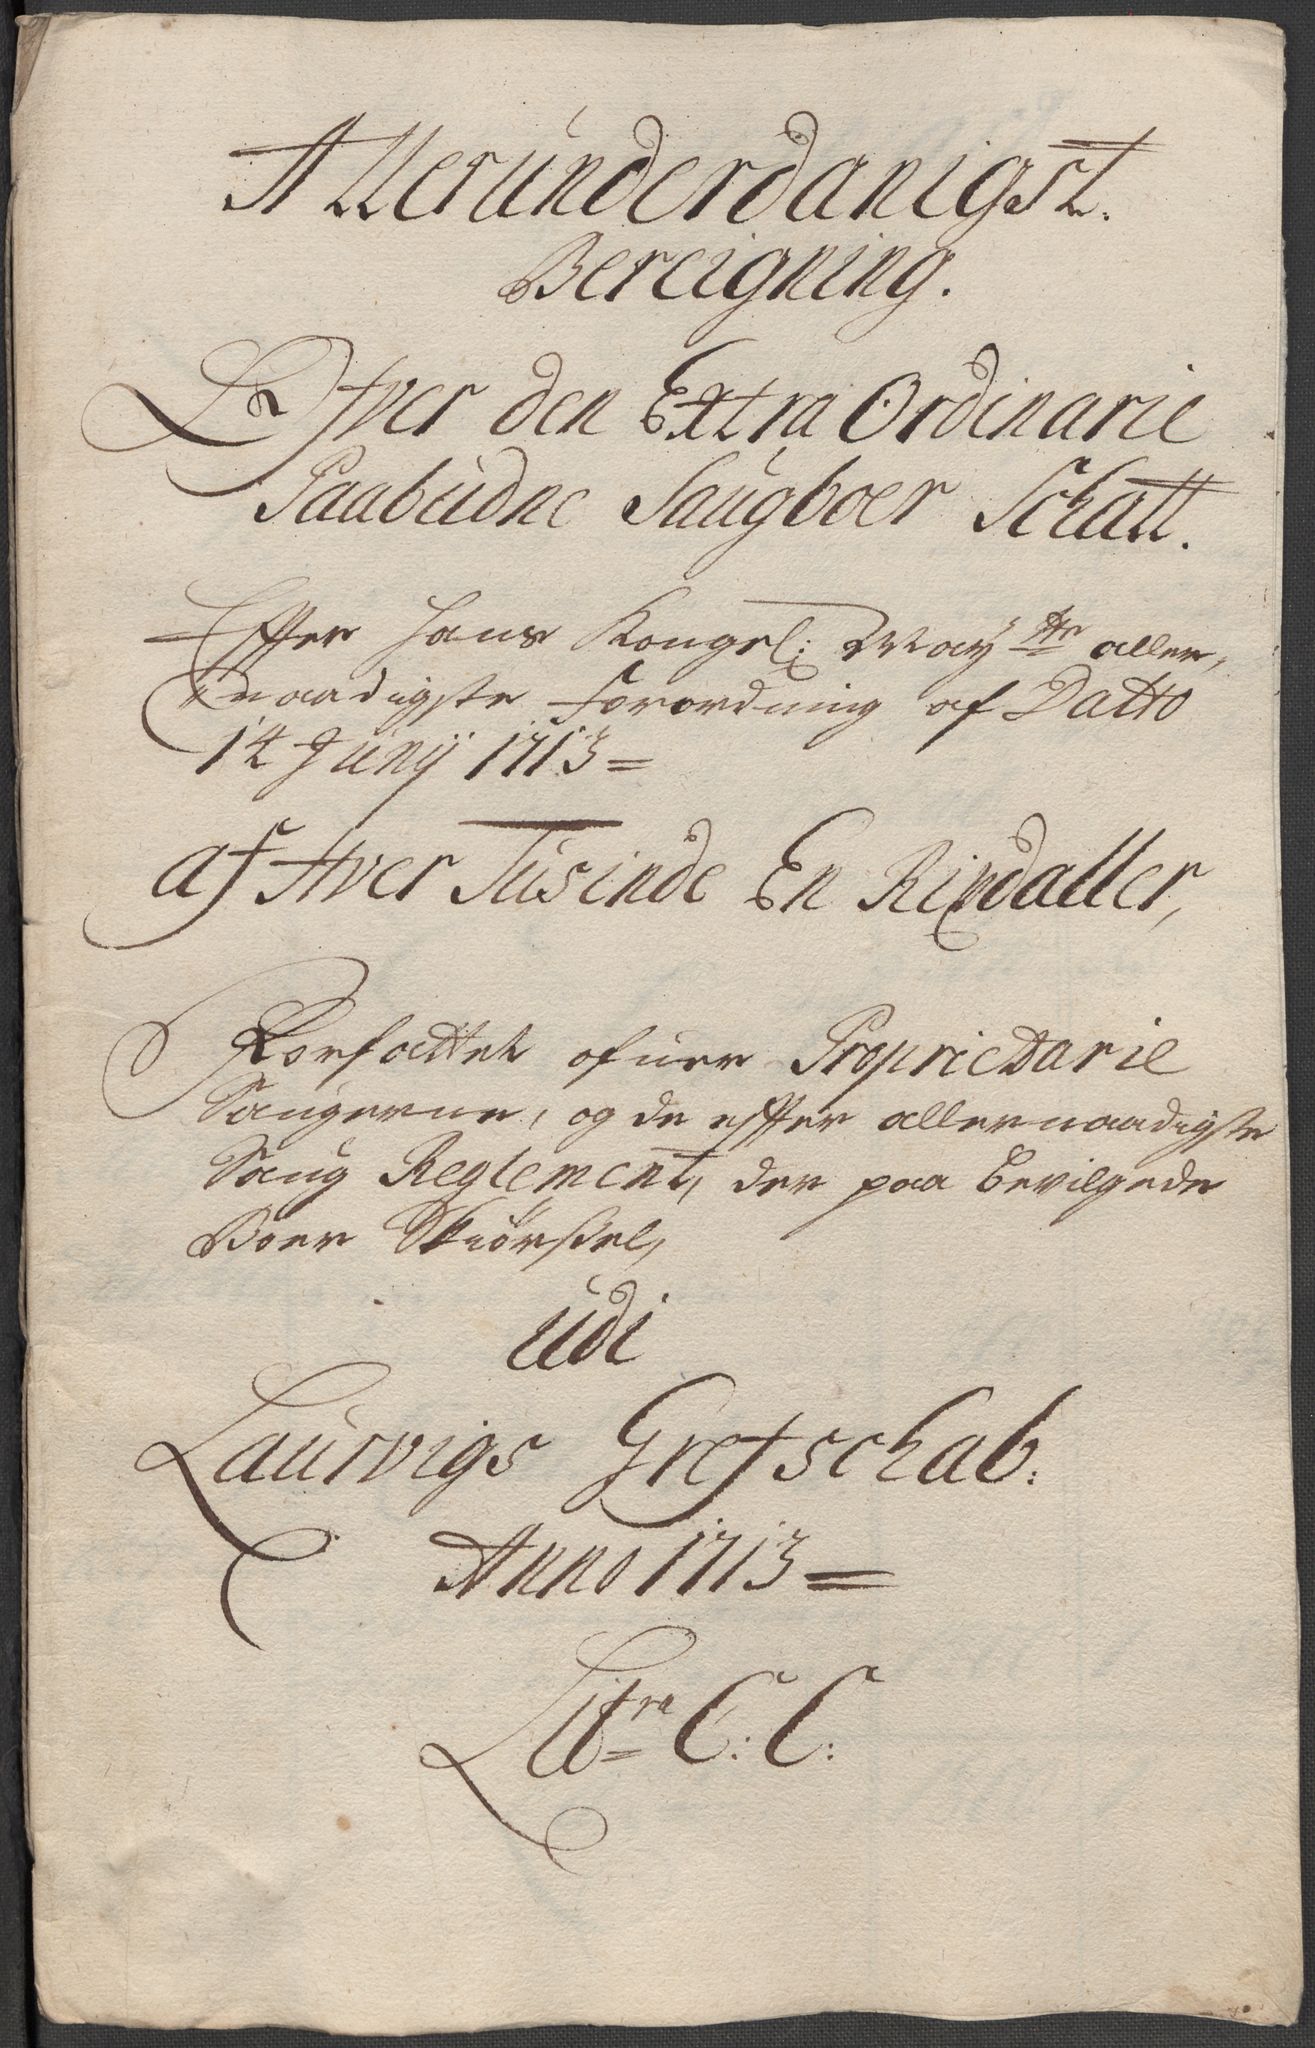 Allerunderdanigst.
Bereigning.
Ofver den Extra Ordinarie
Paabudne Saugboer Schatt.
Effter Hans Kongel: May^tts aller,
naadigste forordning af Datto
14 Junij 1713=
af Hver Tusinde En Rixdaller,
Forfattet ofuer Proprietarie
Saugerne, og de effter allernaadigste
Saug Reglement, der paa bevilgede
Boer Skiørsel,
udi
Laurvigs Grefschab:
Anno 1713=
Lit^ra C: C: